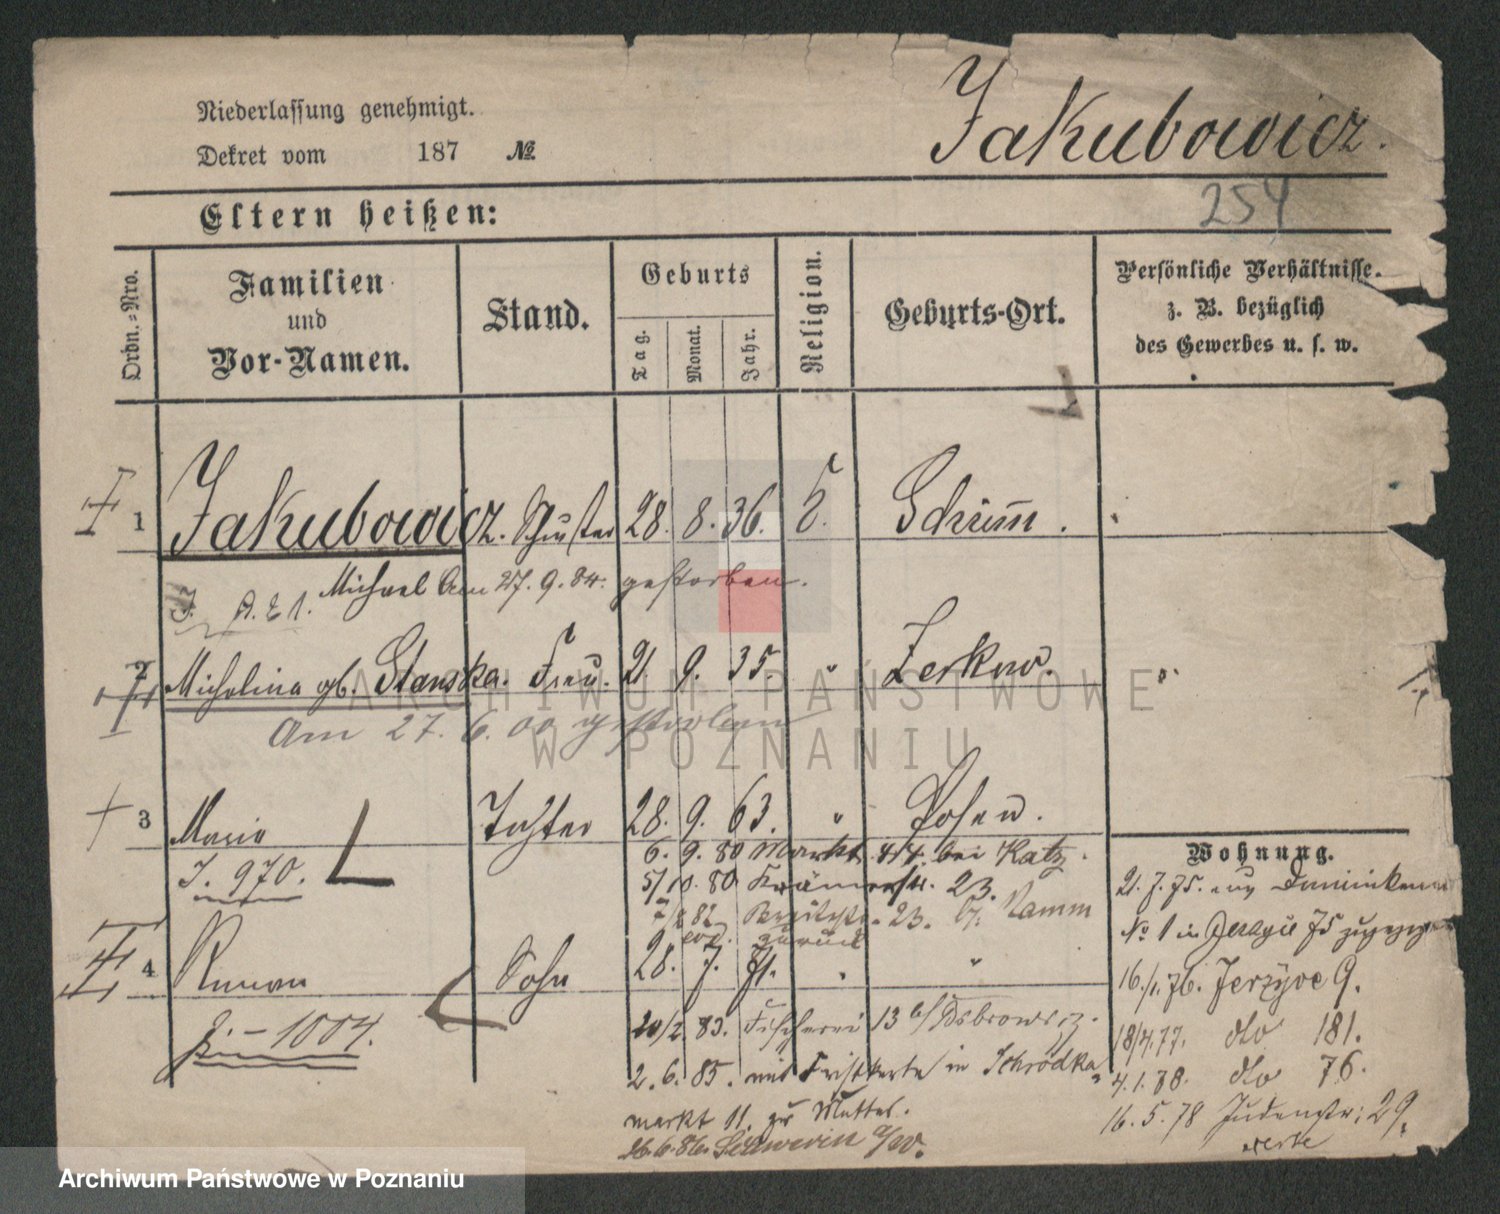 Niederlassung genehmigt.
Dekret vom 187 №
Jakubowicz.
254
Eltern heißen:
Ordn.-Nro.
Familien und Vor-Namen.
Stand.
Geburts
Tag. Monat. Jahr.
Religion.
Geburts-Ort.
Persönliche Verhältnisse.
z. B. bezüglich
des Gewerbes u. s. w.
1 Jakubowicz. Schuster 28. 8. 36. Schrimm.
Michael Am 27. 9. 84. gestorben.
2 Michalina gb. Stanska. Frau. 21 9. 35. " Zerkow. "
Am 27. 6. 00 gestorben
3 Maria Tochter 28. 9. 63. " Posen.
J. 970.
6. 9. 80 Markt 44. bei Katz.
5/10. 80 Krämerstr. 23.
82 23. Kamm
zurück
4 Roman Sohn 28. 7. 71. " "
J. - 1004.
20/2. 83. Fischerei 13 b/
2. 6. 85. mit in Schrodka
markt 11. zur Mutter.
26.6.86. Schwerin a/W.
Wohnung.
21. 7. 75. aus Dominikaner
№ 1 in 75 zugezogen
16./1. 76. Jerzyce 9.
18/4.77. dto 181.
4.1.78. dto 76.
16. 5. 78 Judenstr: 29.
ARCHIWUM PAŃSTWOWE
W POZNANIU
Archiwum Państwowe w Poznaniu